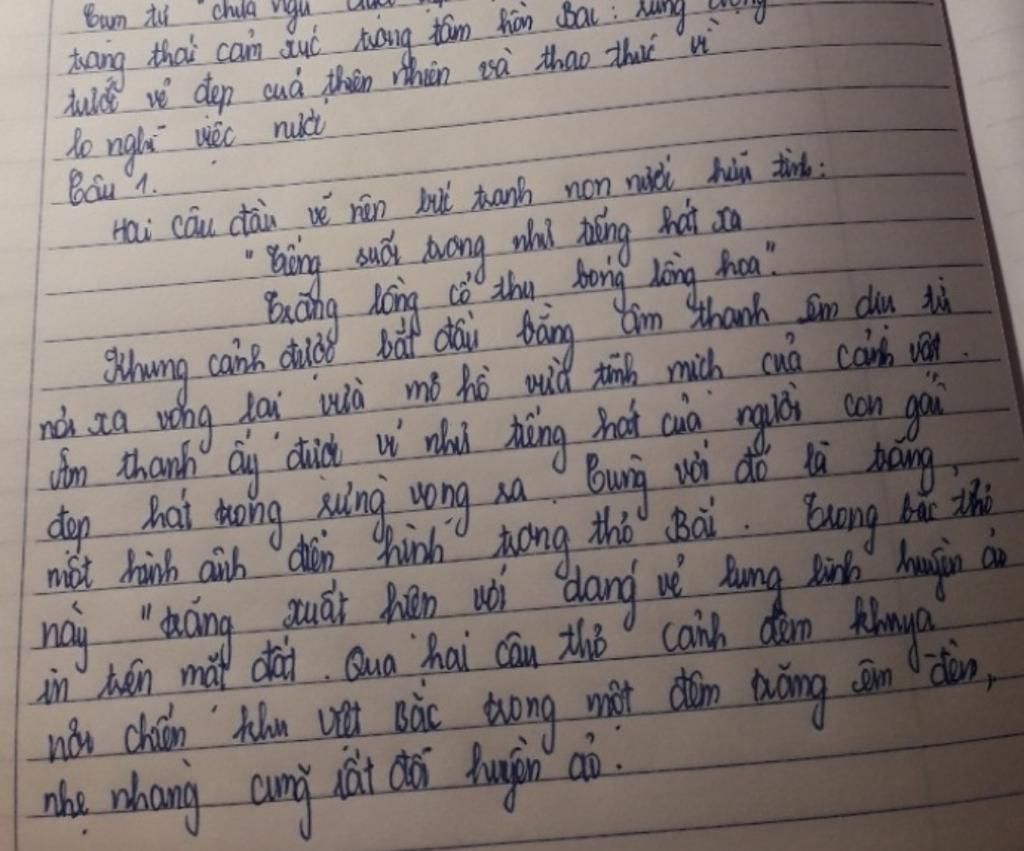 Cụm từ "chưa ngủ
trạng thái cảm xúc trong tâm hồn Bác: rung động
trước vẻ đẹp của thiên nhiên và thao thức vì
lo nghĩ việc nước
Câu 1.
Hai câu đầu vẽ nên bức tranh non nước hữu tình:
"Tiếng suối trong như tiếng hát xa
Trăng lồng cổ thụ bóng lồng hoa".
Khung cảnh được bắt đầu bằng âm thanh êm dịu từ
nơi xa vọng lại vừa mơ hồ vừa tĩnh mịch của cảnh vật.
Âm thanh ấy được ví như tiếng hát của người con gái
đẹp hát trong rừng vọng ra. Cùng với đó là trăng,
một hình ảnh điển hình trong thơ Bác. Trong bác thơ
này "trăng xuất hiện với dáng vẻ lung linh huyền ảo
in trên mặt đất. Qua hai câu thơ cảnh đêm khuya
nơi chiến khu Việt Bắc trong một đêm trăng êm đềm,
nhẹ nhàng cũng rất đỗi huyền ảo.